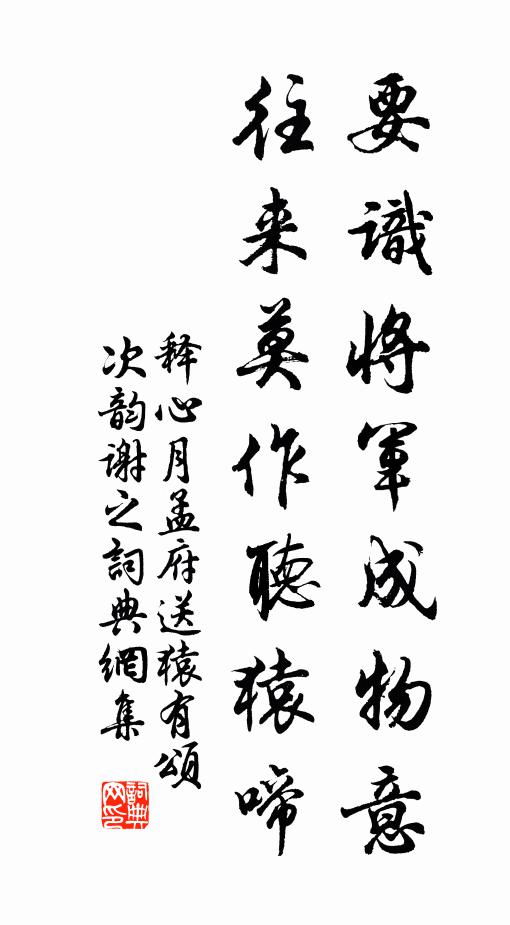 要識將軍成物意
往来莫作聽猿啼
释心月孟府送猿有頌
次韵谢之詞典網集
詞典网印